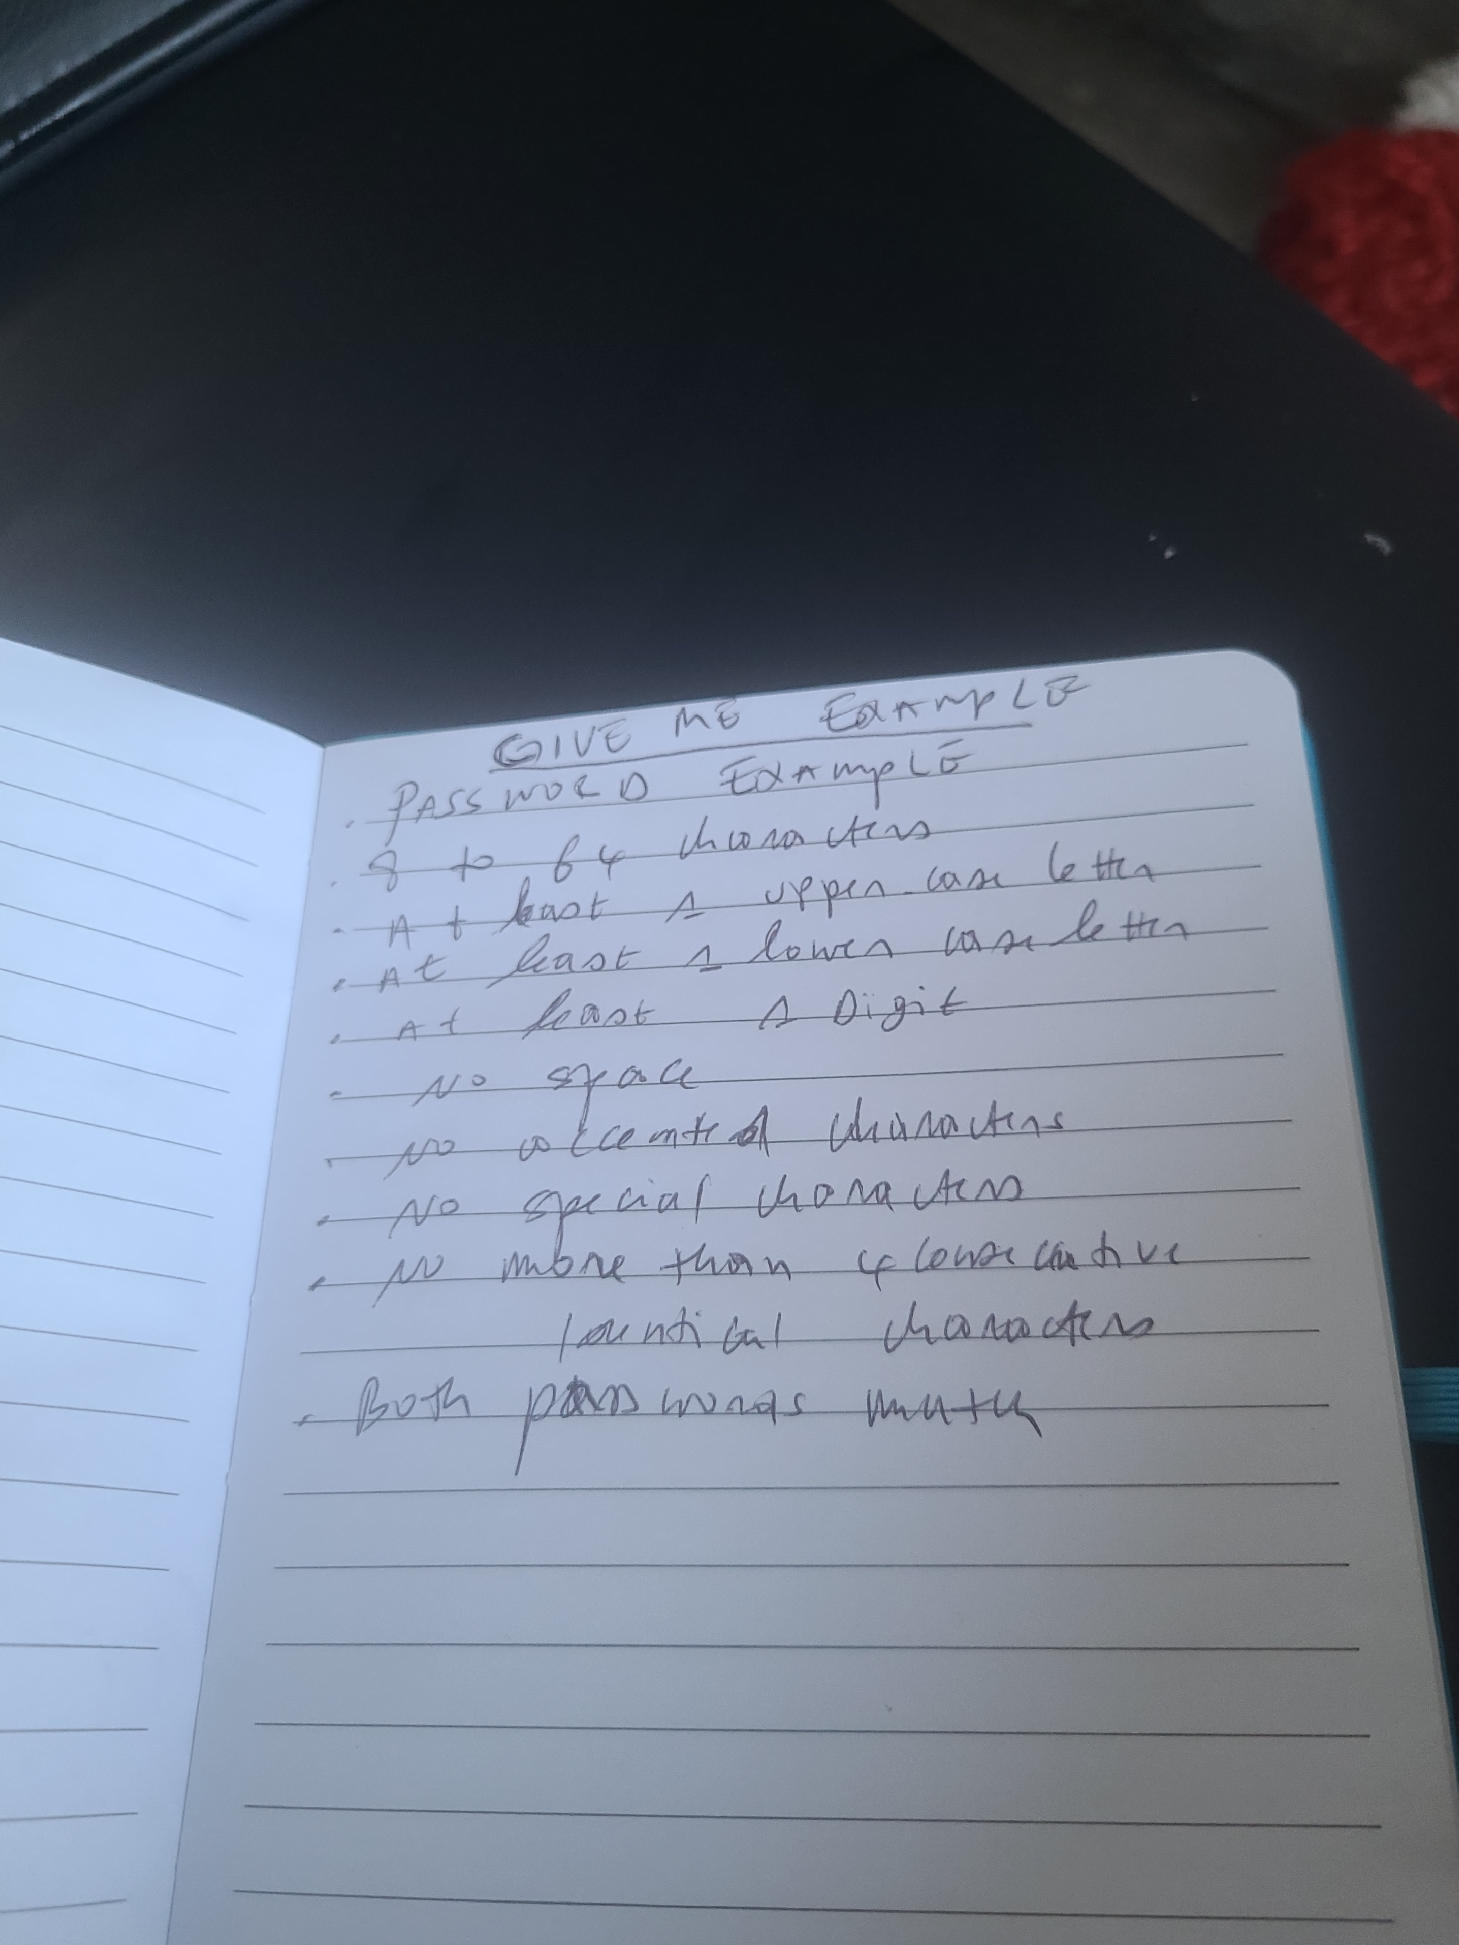 GIVE ME EXAMPLE
. PASSWORD EXAMPLE
. 8 to 64 characters
. At least 1 upper case letter
. At least 1 lower case letter
. At least 1 Digit
- No space
. No accented characters
. No special characters
. No more than 4 consecutive
identical characters
. Both passwords match